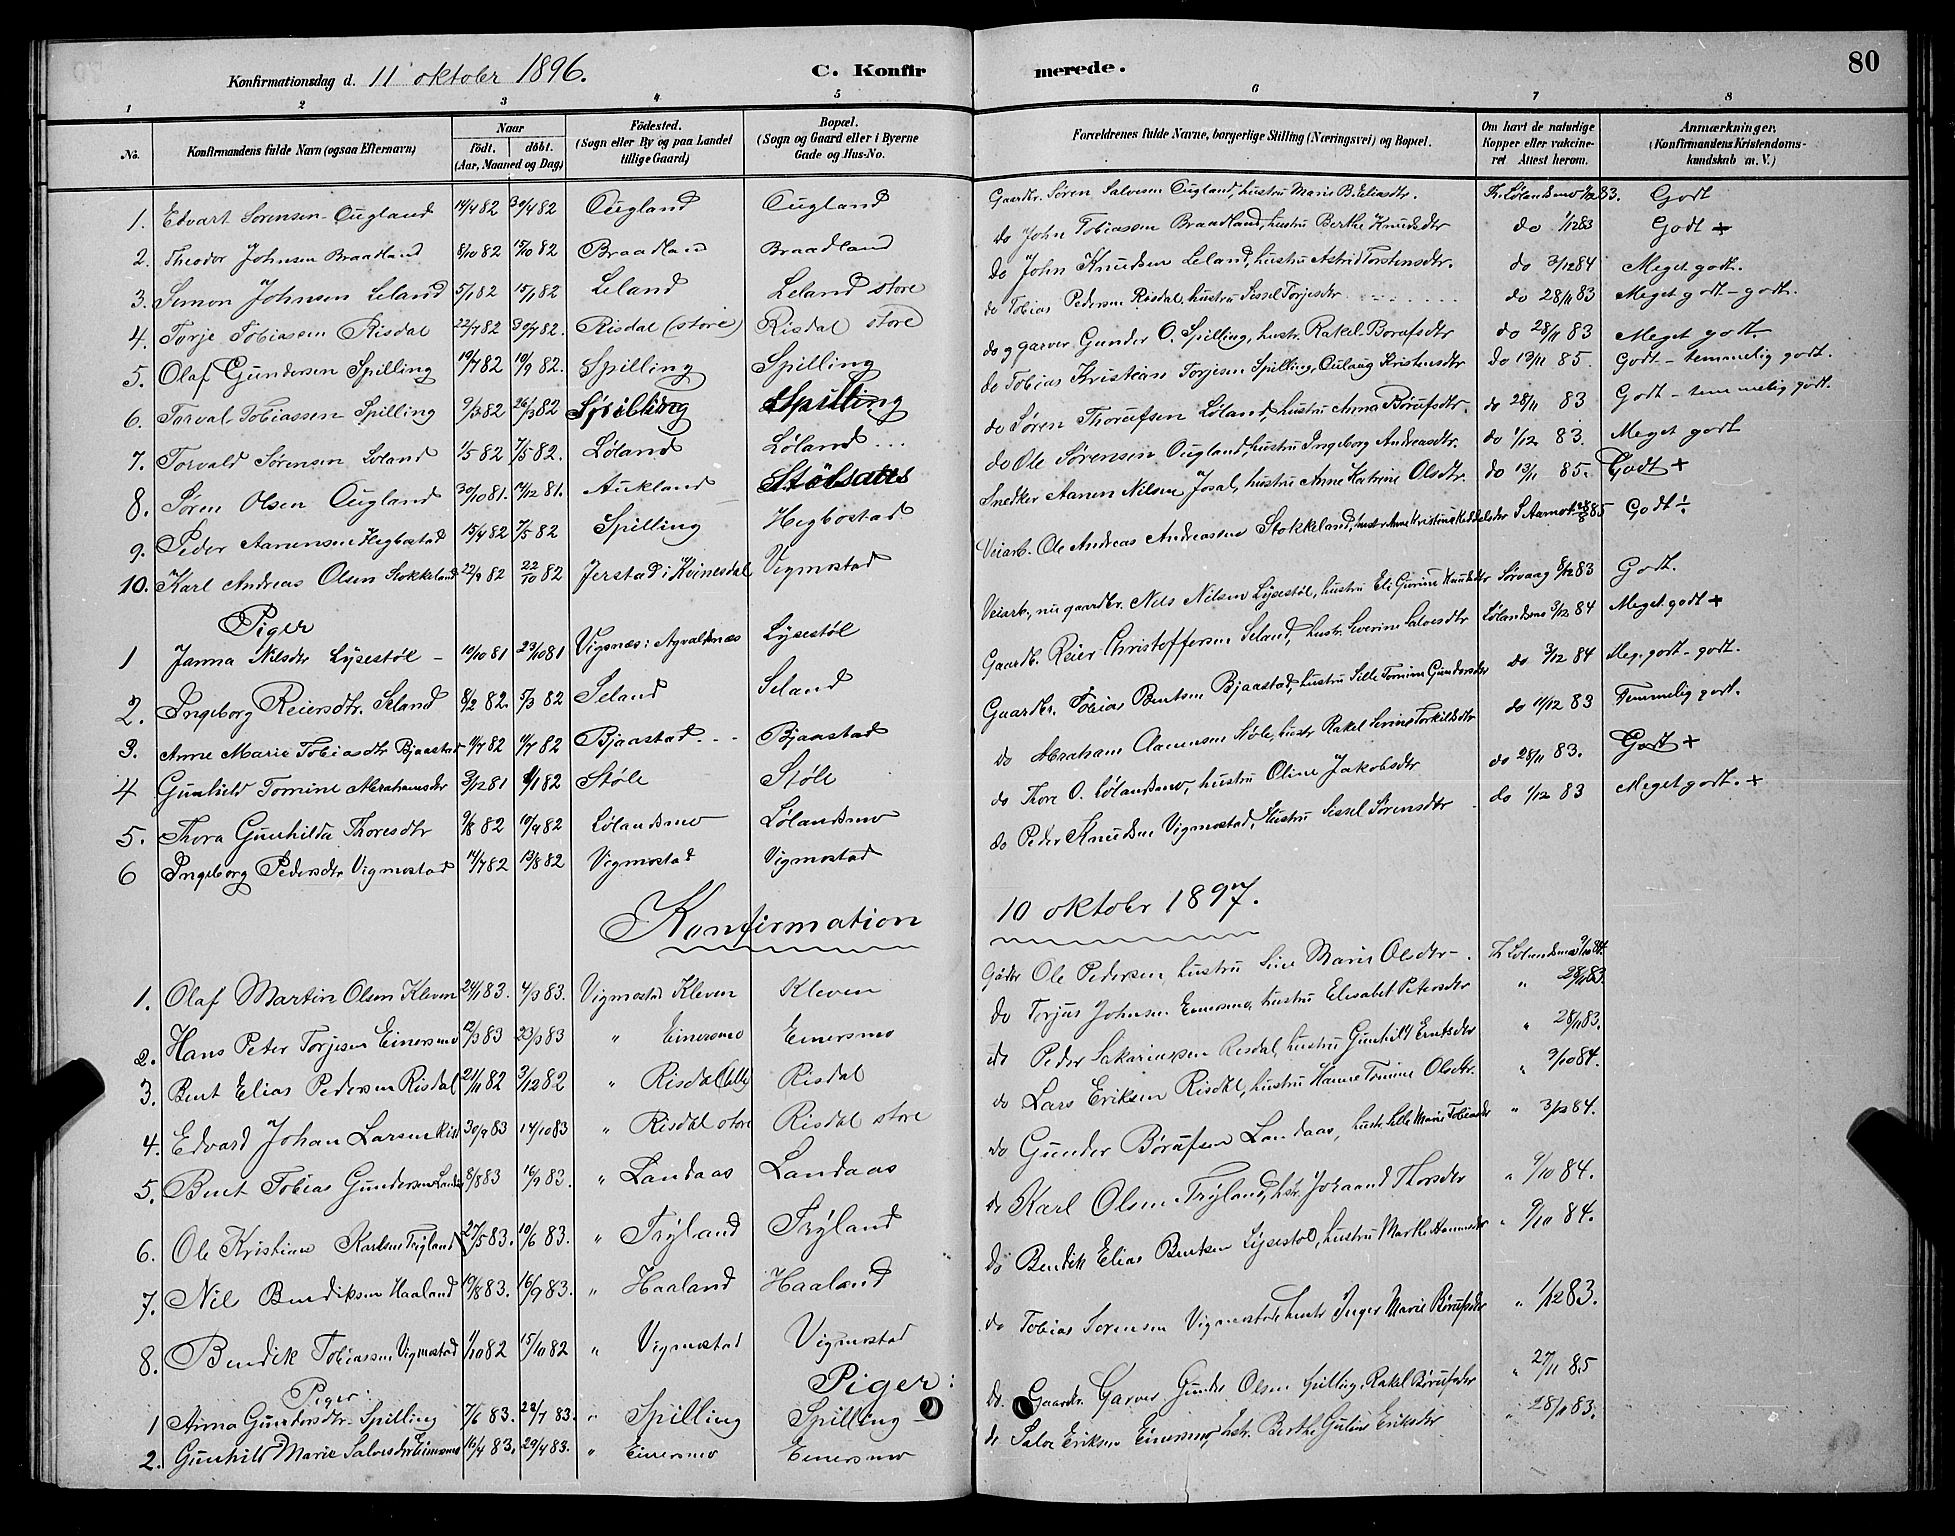 Konfirmationsdag d. 11 oktober 1896. C. Konfir merede. 80
1 2 3 4 5 6 7 8
No. Konfirmandens fulde Navn (ogsaa Efternavn) Naar födt. döbt. (Aar, Maaned og Dag) Födested. (Sogn eller By og paa Landet tillige Gaard) Bopæl. (Sogn og Gaard eller i Byerne Gade og Hus-No. Forældrenes fulde Navne, borgerlige Stilling (Næringsvei) og Bopæl. Om havt de naturlige Kopper eller vakcineret Attest herom. Anmærkninger. (Konfirmandens Kristendomskundskab m. V.)
1. Edvart Sørensen Ougland 14/4 82 30/4 82 Ougland Ougland Gaardbr. Søren Salvesen Ougland, hustru Marie B. Eliasdtr. Th. Lølandsmo 1/12 83. Godt
2. Theodor Johnsen Braadland 8/10 82 15/10 82 Braadland Braadland do John Tobiassen Braadland, hustru Berthe Knudsdtr do 1/12 83 Godt +
3. Simon Johnsen Leland 5/1 82 15/1 82 Leland Leland store do John Knudsen Leland, hustru Astrid Torstensdtr. do 3/12 84 Meget godt.
4. Torje Tobiassen Risdal 22/7 82 30/7 82. Risdal (store) Risdal store do Tobias Pedersen Risdal, hustru Sessel Torjesdtr do 28/11 83 Meget godt - godt.
5. Olaf Gundersen Spilling 19/7 82 10/9 82. Spilling Spilling do og garver Gunder O. Spilling, hustr. Rakel Børufsdtr do 28/11 83 Meget godt
6. Torval Tobiassen Spilling 9/3 82 26/3 82 Spilling Spilling do Tobias Kristian Torjesen Spilling, Oulaug Kristensdtr do 13/11 85. Godt - temmelig godt.
7. Torvald Sørensen Løland 1/5 82 7/5 82. Løland Løland ... do Søren Thorufsen Løland, hustru Anna Børufsdtr. do 28/11 83 Godt - temmelig godt.
8. Søren Olsen Ougland 30/10 81. 11/12 81. Aukland Stølsaas do Ole Sørensen Ougland, hustru Ingeborg Andreasdtr. do 1/12 83. Meget godt
9. Peder Aanensen Hegbostad 15/4 82 7/5 82 Spilling Hegbostad Snedker Aanen Nilsen Josal, hustru Anne Katrine Olsdtr. do 13/11 85. Godt +
10. Karl Andreas Olsen Stokkeland 22/9 82 22/10 82 Jerstad i Kvinesdal Vigmostad Veiarb. Ole Andreas Andreassen Stokkeland, hustr. Anne Kristine S. Aamot 85 Godt ÷
Piger
1 Janna Nilsdtr Lysestøl - 10/10 81 23/10 81 Vigsnæs i Avaldsnæs Lysestøl Veiarb., nu gaardbr. Nils Nilsen Lysestøl, hustru Eli Gurine Knudsdtr Sørvaag 8/12 83 Godt.
2. Ingeborg Reiersdtr. Seland 8/2 82. 5/3 82 Seland Seland Gaardb. Reier Christoffersen Seland, hustr. Severine Salvesdtr Lølandsmo 3/12 84 Meget godt +
3. Anne Marie Tobiasdtr Bjaastad 11/7 82 Bjaastad Bjaastad Gaardbr. Tobias Bentsen Bjaastad, hustru Sille Tomine Gundersdtr do 3/12 84 Meg. godt - godt.
4 Gunhild Tomine Abrahamsdtr 3/12 81 1/1 82 Støle Støle do Abraham Aanensen Støle, hustr Rakel Serine Torkildsdtr do 11/12 83 Temmelig godt.
5. Thora Gunhilda Thoresdtr 9/8 82 10/9 82 Lølandsmo Lølandsmo do Thore O. Lølandsmo, hustru Oline Jakobsdtr do 28/11 83. Godt +
6 Ingeborg Pedersdtr Vigmostad 14/7 82 13/8 82 Vigmostad Vigmostad do Peder Knudsen Vigmostad, hustru Sessel Sørensdtr do 1/12 83 Meget godt. +
Konfirmation 10 oktober 1897.
1. Olaf Martin Olsen Kleven 24/1 83. 4/3 83. Vigmostad Kleven Kleven Ole Pedersen, hustru Marie Olsdtr Th Lølandsmo 9/10 84.
2. Hans Peter Torjesen Einersmo 12/3 83 23/3 83 " Einersmo Einersmo do Terjus Johnsen Einersmo, hustru Elisabet Petersdtr " 28/11 83.
3. Bent Elias Pedersen Risdal 21/11 82 3/12 82 " Risdal Risdal do Peder Sakariassen Risdal, hustru Gunhild Erntsdtr " 28/11 83.
4. Edvard Johan Larsen 30/9 83 14/10 83 " Risdal store Risdal store do Lars Eriksen Risdal, hustru Hanne Tomine Olsdtr. " 9/10 84.
5. Bent Tobias Gundersen Landaas 8/8 83 16/9 83. " Landaas Landaas do Gunder Børufsen Landaas, Marie Tobiasdtr " 3/12 84.
6. Ole Kristian Karlsen Trÿland 27/5 83. 10/6 83. " Trÿland Trÿland do Karl Olsen Trÿland, hstr. Johanne Thorsdtr " 9/10 84.
7. Nil Bendiksen Haaland 19/8 83. 16/9 83. " Haaland Haaland do Bendik Elias Bentsen Lysestøl, hustru " 9/10 84.
8. Bendik Tobiassen Vigmostad 1/10 82 15/10 82 " Vigmostad Vigmostad do Tobias Sørensen Vigmostad, hustr Inger Marie Børufsdtr " 1/12 83.
Piger: Piger:
1 Anna Gundersdtr. Spilling 7/6 83. 22/7 83. " Spilling Spilling do Gaardbr. Garver Gunder Olsen Spilling, Rakel Børufsdtr " 27/11 85
2. Gunhild Marie Salvesdtr Einersmo 16/4 83. 29/4 83. " Einersmo Einersmo do Salve Eriksen Einersmo, hstr. Berthe Eriksdtr " 28/11 83.